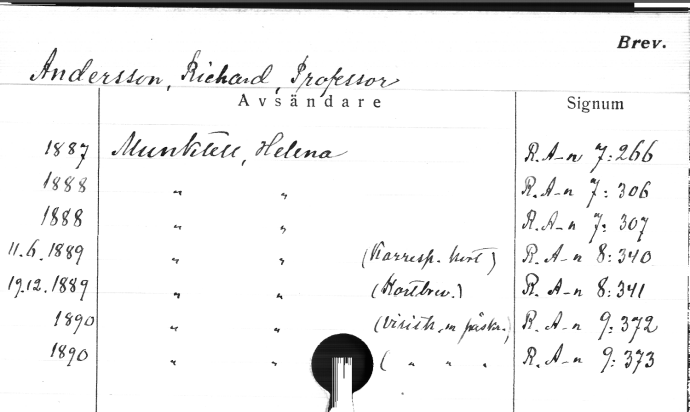 Brev.
Andersson, Richard, Professor
Avsändare Signum
1887 Munktell, Helena R. A-n 7:266
1888 " " R. A-n 7:306
1888 " " R. A-n 7:307
11.6.1889 " " (Korresp. kort) R. A-n 8:340
19.12.1889 " " (Kortbrev.) R. A-n 8:341
1890 " " (visitk. m påskr.) R. A-n 9:372
1890 " " ( " " " R. A-n 9:373